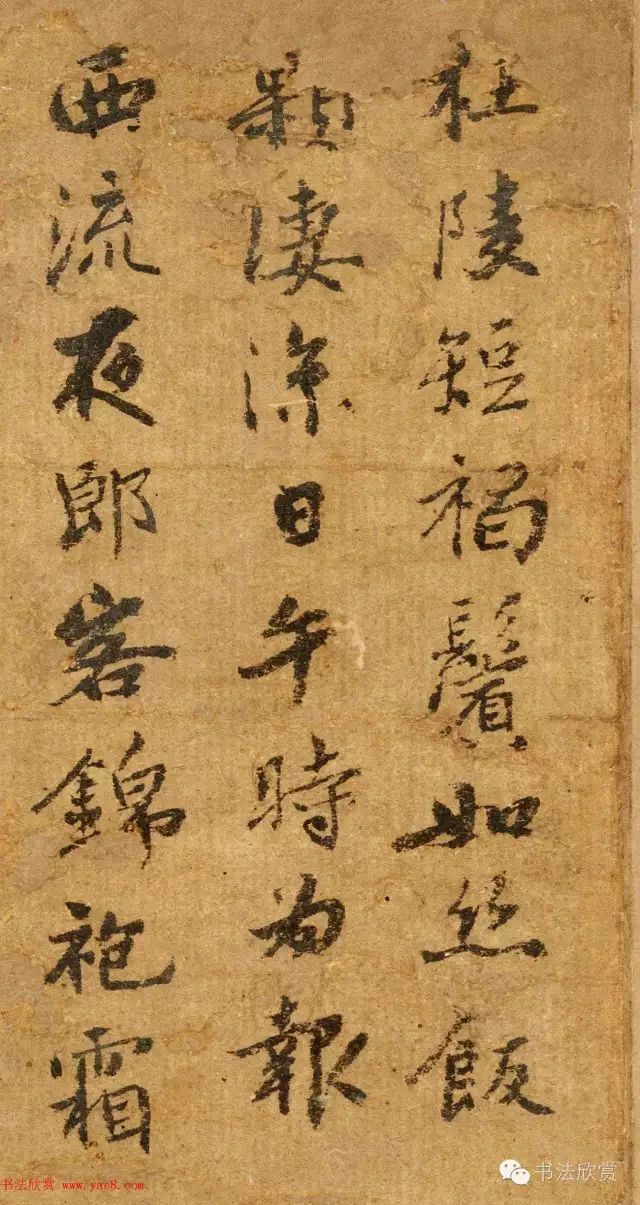 杜陵短褐鬢如絲飯
顆淒涼日午時為報
西流夜郎客錦袍霜
书法欣赏
书法欣赏 www.yac8.com